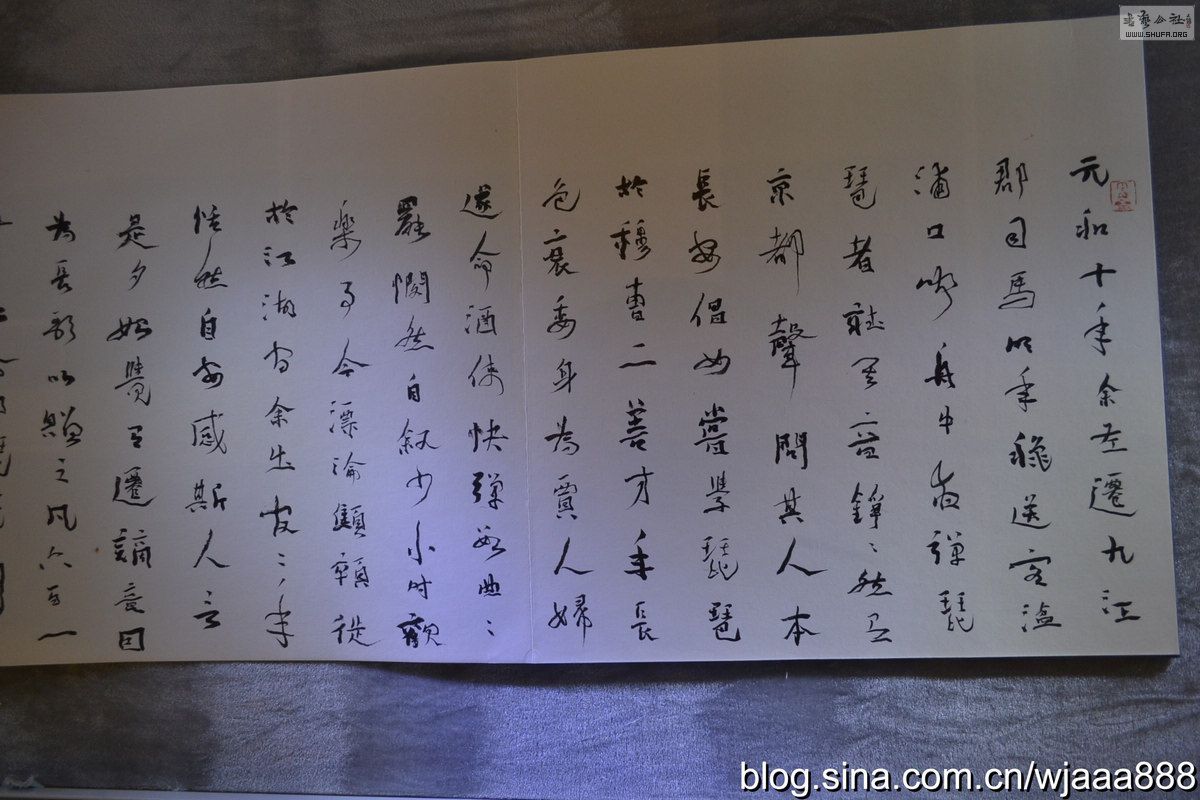 元和十年余左遷九江
郡司馬明年穐送客湓
浦口聞舟中夜彈琵
琶者聽其音錚〻然有
京都聲問其人本
長安倡女嘗學琵琶
於穆曹二善才年長
色衰委身為賈人婦
遂命酒使快彈數曲〻
罷憫然自叙少小時歡
樂事今漂淪顦顇徙
於江湖間余出官二年
恬然自安感斯人言
是夕始覺有遷謫意因
為長歌以贈之凡六百一
書藝公社
WWW.SHUFA.ORG
blog.sina.com.cn/wjaaa888